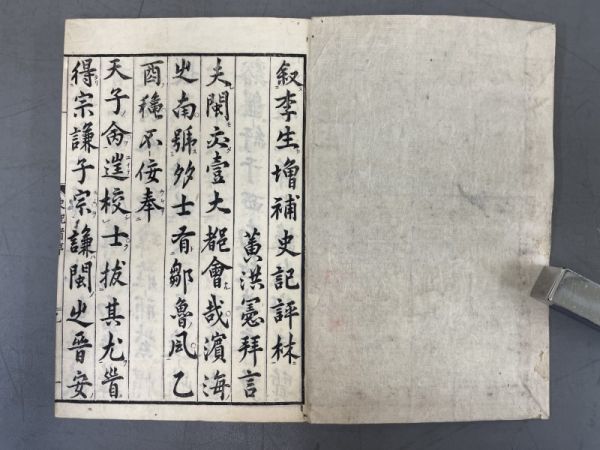 叙李生增補史記評林
黃洪憲拜言
夫閩亦壹大都會哉濱海
之南號多士有鄒魯風乙
酉穐不佞奉
天子命𨗇校士拔其尤皆
得宗謙子宗謙閩之晉安